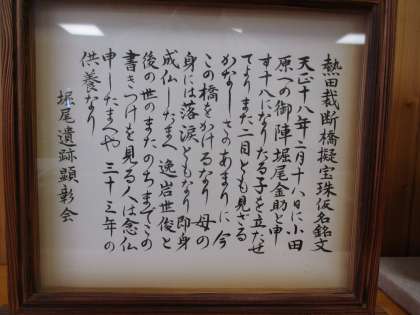 熱田裁断橋擬宝珠仮名銘文
天正十八年二月十八日に小田
原への御陣堀尾金助と申
す十八になりたる子を立たせ
てよりまた二目とも見ざる
かなしさのあまりに今
この橋をかけるなり 母の
身には落涙ともなり即身
成仏したまへ 逸岩世俊と
後の世のまたのちまでこの
書きつけを見る人は念仏
申したまへや 三十三年の
供養なり
堀尾遺跡顕彰会